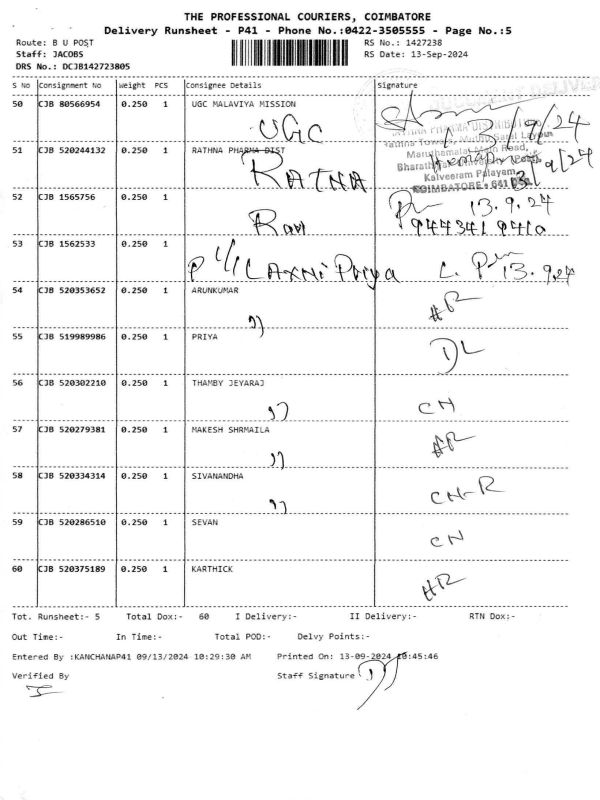 THE PROFESSIONAL COURIERS, COIMBATORE
Delivery Runsheet - P41 - Phone No.:0422-3505555 - Page No.:5
Route: B U POST RS No.: 1427238
Staff: JACOBS RS Date: 13-Sep-2024
DRS No.: DCJB142723805
S No Consignment No Weight PCS Consignee Details Signature
50 CJB 80566954 0.250 1 UGC MALAVIYA MISSION
UGC 13/9/24
51 CJB 520244132 0.250 1 RATHNA PHARMA DIST
RATNA
RATHNA PHARMA DISTRIBUTORS
Maruthamalai Main Road,
Kalveeram Palayam,
COIMBATORE - 641
13/9/24
52 CJB 1565756 0.250 1
Ravi 13.9.24
53 CJB 1562533 0.250 1
Laxmi Priya 13.9.24
54 CJB 520353652 0.250 1 ARUNKUMAR
HR
55 CJB 519989986 0.250 1 PRIYA
DL
56 CJB 520302210 0.250 1 THAMBY JEYARAJ
CN
57 CJB 520279381 0.250 1 MAKESH SHRMAILA
HR
58 CJB 520334314 0.250 1 SIVANANDHA
CN-R
59 CJB 520286510 0.250 1 SEVAN
CN
60 CJB 520375189 0.250 1 KARTHICK
HR
Tot. Runsheet:- 5 Total Dox:- 60 I Delivery:- II Delivery:- RTN Dox:-
Out Time:- In Time:- Total POD:- Delvy Points:-
Entered By :KANCHANAP41 09/13/2024 10:29:30 AM Printed On: 13-09-2024 10:45:46
Verified By Staff Signature